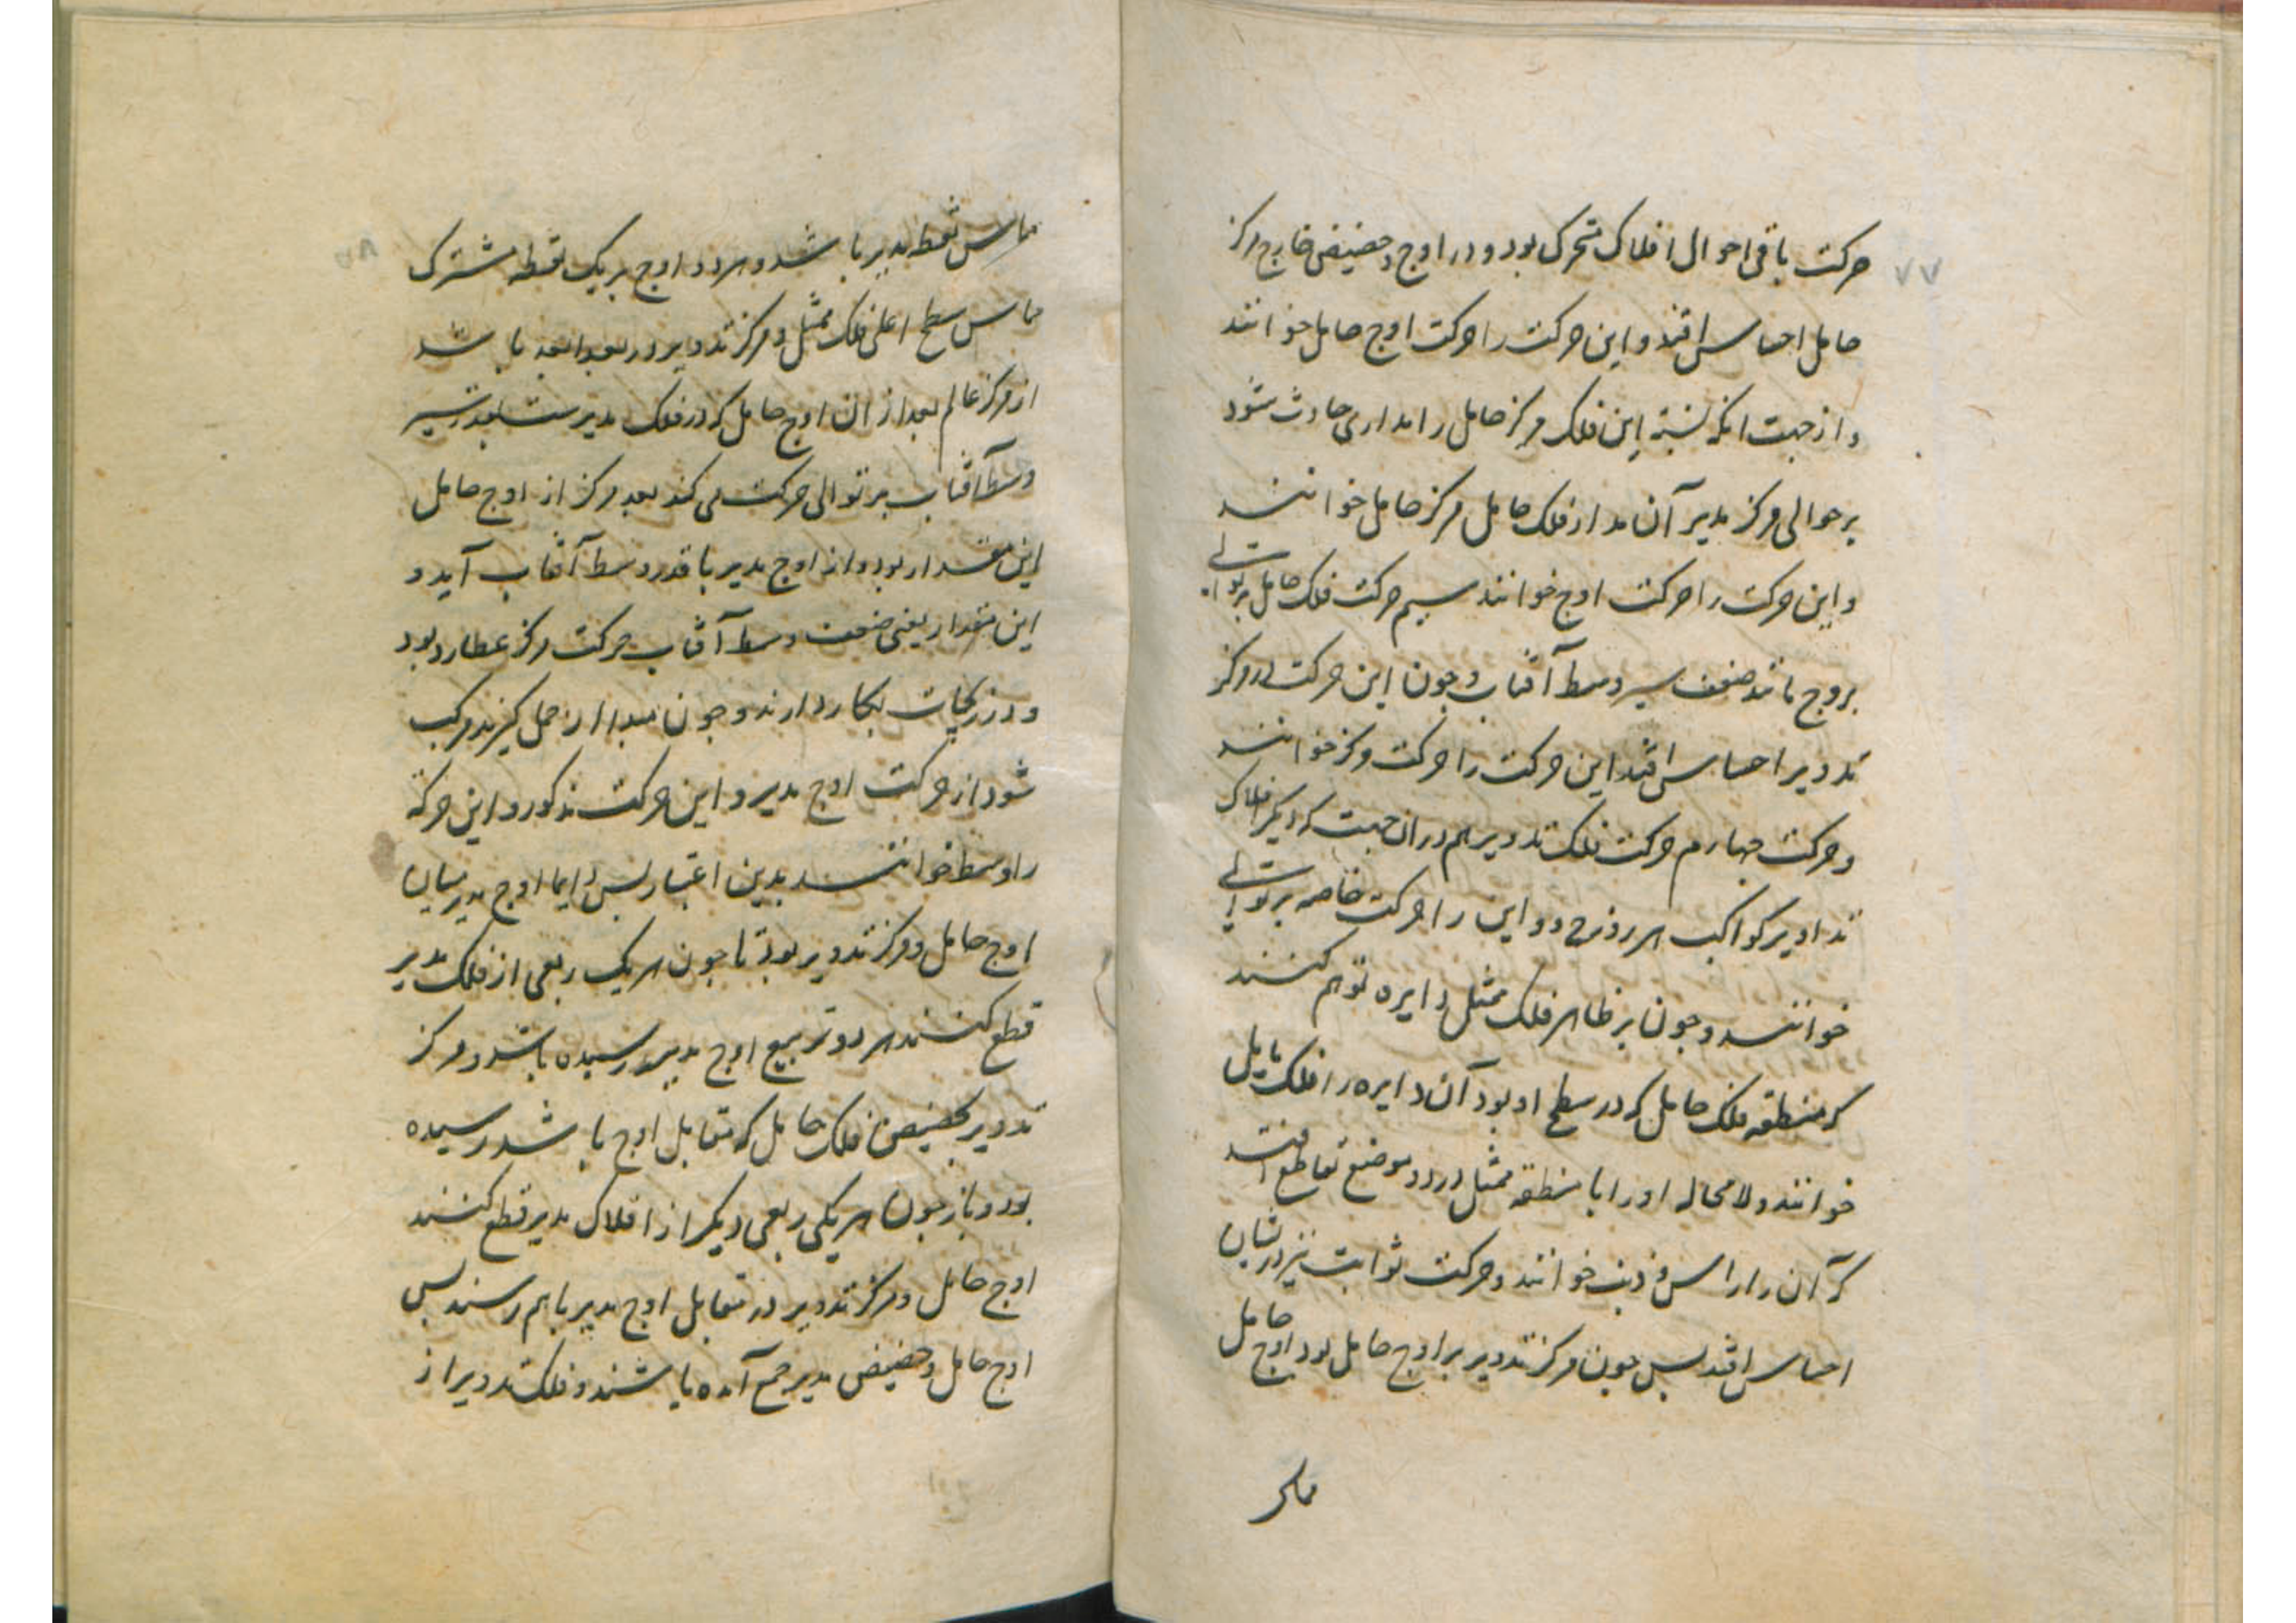 ۷۷
حرکت باقی احوال افلاک متحرک بود و در اوج و حضیض خارج مرکز
حامل احساس افتد و این حرکت را حرکت اوج حامل خوانند
و از جهت انکه نسبة این فلک مرکز حامل را مداری حادث شود
بر حوالی مرکز مدیر آن مدار فلک حامل مرکز حامل خوانند
و این حرکت را حرکت اوج خوانند سیم حرکت فلک حامل بر توالی
بروج مانند ضعف سیر وسط آفتاب و جون این حرکت در مرکز
تدویر احساس افتد این حرکت را حرکت مرکز خوانند
و حرکت جهارم حرکت فلک تدویر هم دران جهت که دیکر افلاک
تداویر کواکب هر روز ج و و این را حرکت خاصه بر توالی
خوانند و جون بر ظاهر فلک ممثل دایره توهم کنند
که منطقه فلک حامل که در سطح او بود آن دایره را فلک مایل
خوانند و لا محاله او را با منطقه ممثل در دو موضع تقاطع افتد
که آن را راس و ذنب خوانند و حرکت ثوابت نیز دریشان
احساس افتد بس جون مرکز تدویر بر اوج حامل بود اوج حامل
مماس
۷۸
مماس نقطه مدیر باشد و هر دو اوج بر یک نقطه مشترک
مماس سطح اعلی فلک ممثل و مرکز تدویر در بعد ابعد باشد
از مرکز عالم بعد از ان اوج حامل که در فلک مدیرست بقدر سیر
وسط آفتاب بر توالی حرکت می کند بعد مرکز از اوج حامل
این مقدار بود و از اوج مدیر با قدر وسط آفتاب آید و
این مقدار یعنی ضعف وسط آفتاب حرکت مرکز عطارد بود
و در زیجات بکار دارند و جون مبدا از حمل کیرند مرکب
شود از حرکت اوج مدیر و این حرکت مذکور و این حرکة
را وسط خوانند بدین اعتبار بس دایما اوج مدیر میان
اوج حامل و مرکز تدویر بود تا جون هر یک ربعی از فلک مدیر
قطع کنند هر دو تربیع اوج مدیر رسیده باشد و مرکز
تدویر بحضیض فلک حامل که متقابل اوج باشد رسیده
بود و باز جون هر یکی ربعی دیکر از افلاک مدیر قطع کنند
اوج حامل و مرکز تدویر در متقابل اوج مدیر باهم رسند بس
اوج حامل و حضیض مدیر جمع آمده باشند و فلک تدویر از